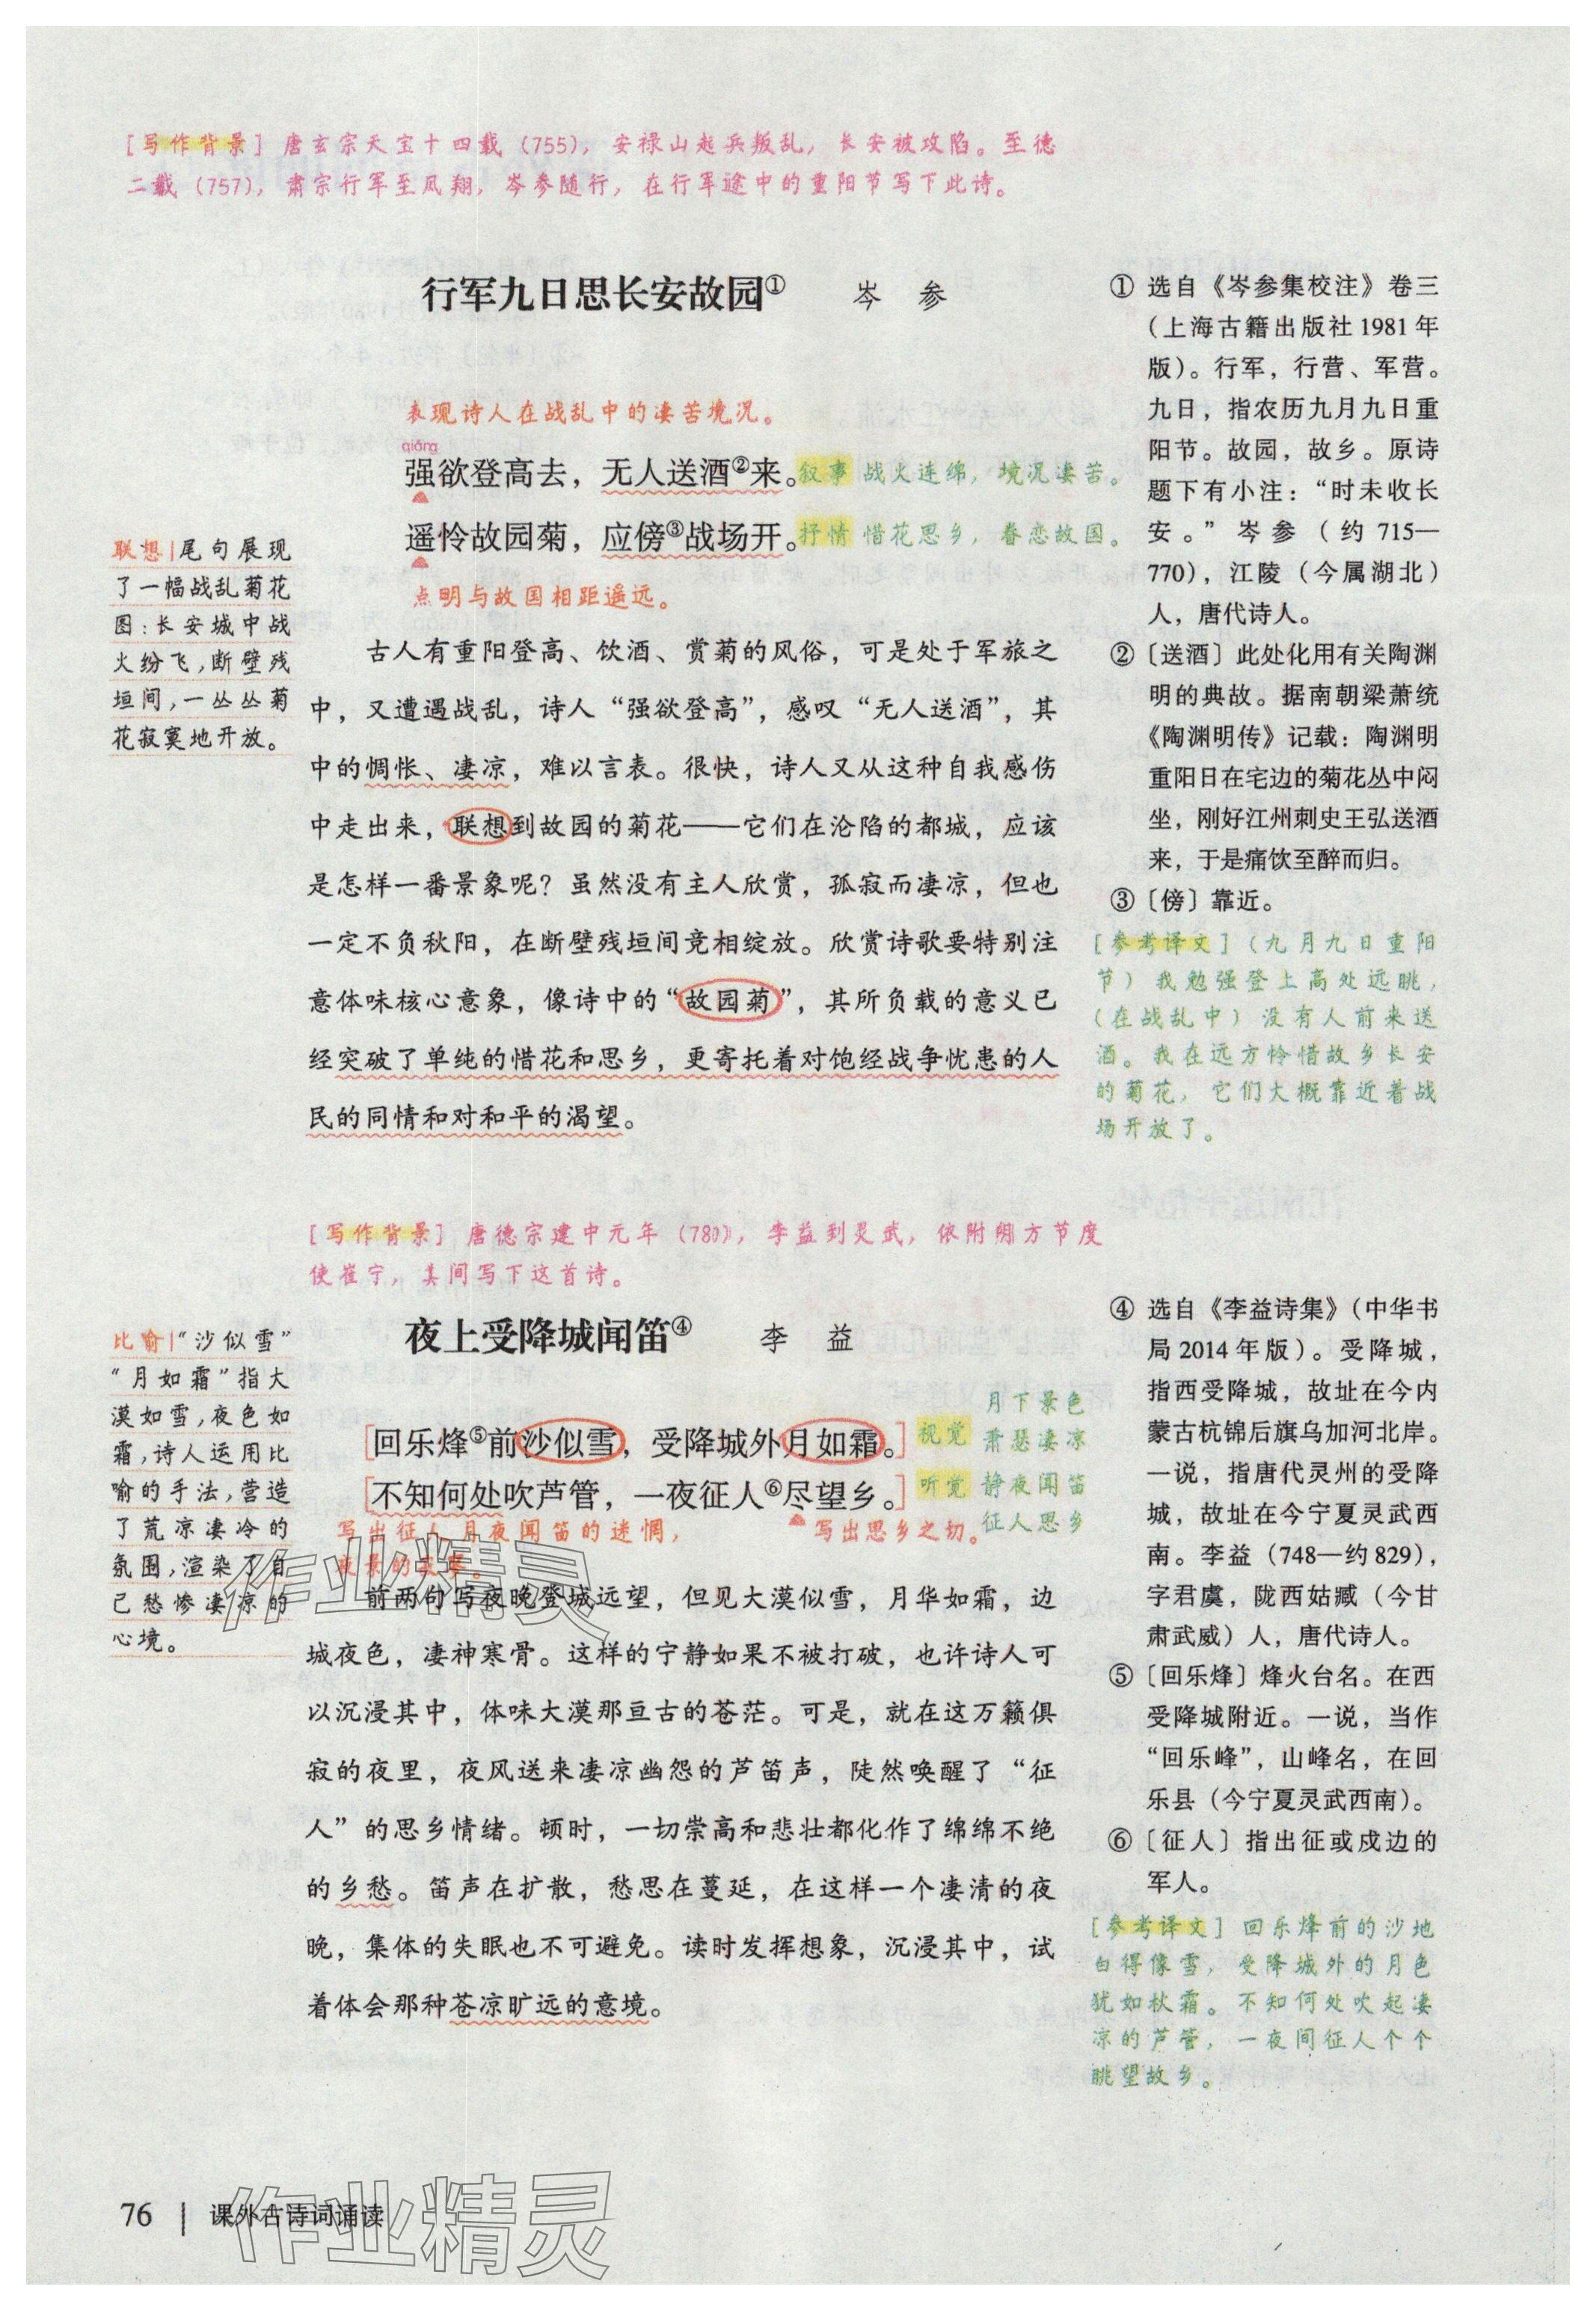 [写作背景] 唐玄宗天宝十四载（755），安禄山起兵叛乱，长安被攻陷。至德
二载（757），肃宗行军至凤翔，岑参随行，在行军途中的重阳节写下此诗。
行军九日思长安故园① 岑 参
表现诗人在战乱中的凄苦境况。
qiǎng
强欲登高去，无人送酒②来。叙事 战火连绵，境况凄苦。
遥怜故园菊，应傍③战场开。抒情 惜花思乡，眷恋故国。
点明与故国相距遥远。
联想|尾句展现
了一幅战乱菊花
图：长安城中战
火纷飞，断壁残
垣间，一丛丛菊
花寂寞地开放。
古人有重阳登高、饮酒、赏菊的风俗，可是处于军旅之
中，又遭遇战乱，诗人“强欲登高”，感叹“无人送酒”，其
中的惆怅、凄凉，难以言表。很快，诗人又从这种自我感伤
中走出来，联想到故园的菊花——它们在沦陷的都城，应该
是怎样一番景象呢？虽然没有主人欣赏，孤寂而凄凉，但也
一定不负秋阳，在断壁残垣间竞相绽放。欣赏诗歌要特别注
意体味核心意象，像诗中的“故园菊”，其所负载的意义已
经突破了单纯的惜花和思乡，更寄托着对饱经战争忧患的人
民的同情和对和平的渴望。
① 选自《岑参集校注》卷三
（上海古籍出版社1981年
版）。行军，行营、军营。
九日，指农历九月九日重
阳节。故园，故乡。原诗
题下有小注：“时未收长
安。”岑参（约715—
770），江陵（今属湖北）
人，唐代诗人。
② 〔送酒〕此处化用有关陶渊
明的典故。据南朝梁萧统
《陶渊明传》记载：陶渊明
重阳日在宅边的菊花丛中闷
坐，刚好江州刺史王弘送酒
来，于是痛饮至醉而归。
③ 〔傍〕靠近。
[参考译文]（九月九日重阳
节）我勉强登上高处远眺，
（在战乱中）没有人前来送
酒。我在远方怜惜故乡长安
的菊花，它们大概靠近着战
场开放了。
[写作背景] 唐德宗建中元年（780），李益到灵武，依附朔方节度
使崔宁，其间写下这首诗。
夜上受降城闻笛④ 李 益
[回乐烽⑤前沙似雪，受降城外月如霜。] 视觉
月下景色
萧瑟凄凉
[不知何处吹芦管，一夜征人⑥尽望乡。] 听觉
静夜闻笛
征人思乡
写出征人月夜闻笛的迷惘，
写出思乡之切。
比喻|“沙似雪”
“月如霜”指大
漠如雪，夜色如
霜，诗人运用比
喻的手法，营造
了荒凉凄冷的
氛围，渲染了自
己愁惨凄凉的
心境。
前两句写夜晚登城远望，但见大漠似雪，月华如霜，边
城夜色，凄神寒骨。这样的宁静如果不被打破，也许诗人可
以沉浸其中，体味大漠那亘古的苍茫。可是，就在这万籁俱
寂的夜里，夜风送来凄凉幽怨的芦笛声，陡然唤醒了“征
人”的思乡情绪。顿时，一切崇高和悲壮都化作了绵绵不绝
的乡愁。笛声在扩散，愁思在蔓延，在这样一个凄清的夜
晚，集体的失眠也不可避免。读时发挥想象，沉浸其中，试
着体会那种苍凉旷远的意境。
④ 选自《李益诗集》（中华书
局2014年版）。受降城，
指西受降城，故址在今内
蒙古杭锦后旗乌加河北岸。
一说，指唐代灵州的受降
城，故址在今宁夏灵武西
南。李益（748—约829），
字君虞，陇西姑臧（今甘
肃武威）人，唐代诗人。
⑤ 〔回乐烽〕烽火台名。在西
受降城附近。一说，当作
“回乐峰”，山峰名，在回
乐县（今宁夏灵武西南）。
⑥ 〔征人〕指出征或戍边的
军人。
[参考译文] 回乐烽前的沙地
白得像雪，受降城外的月色
犹如秋霜。不知何处吹起凄
凉的芦管，一夜间征人个个
眺望故乡。
作业精灵
76 | 课外古诗词诵读
作业精灵